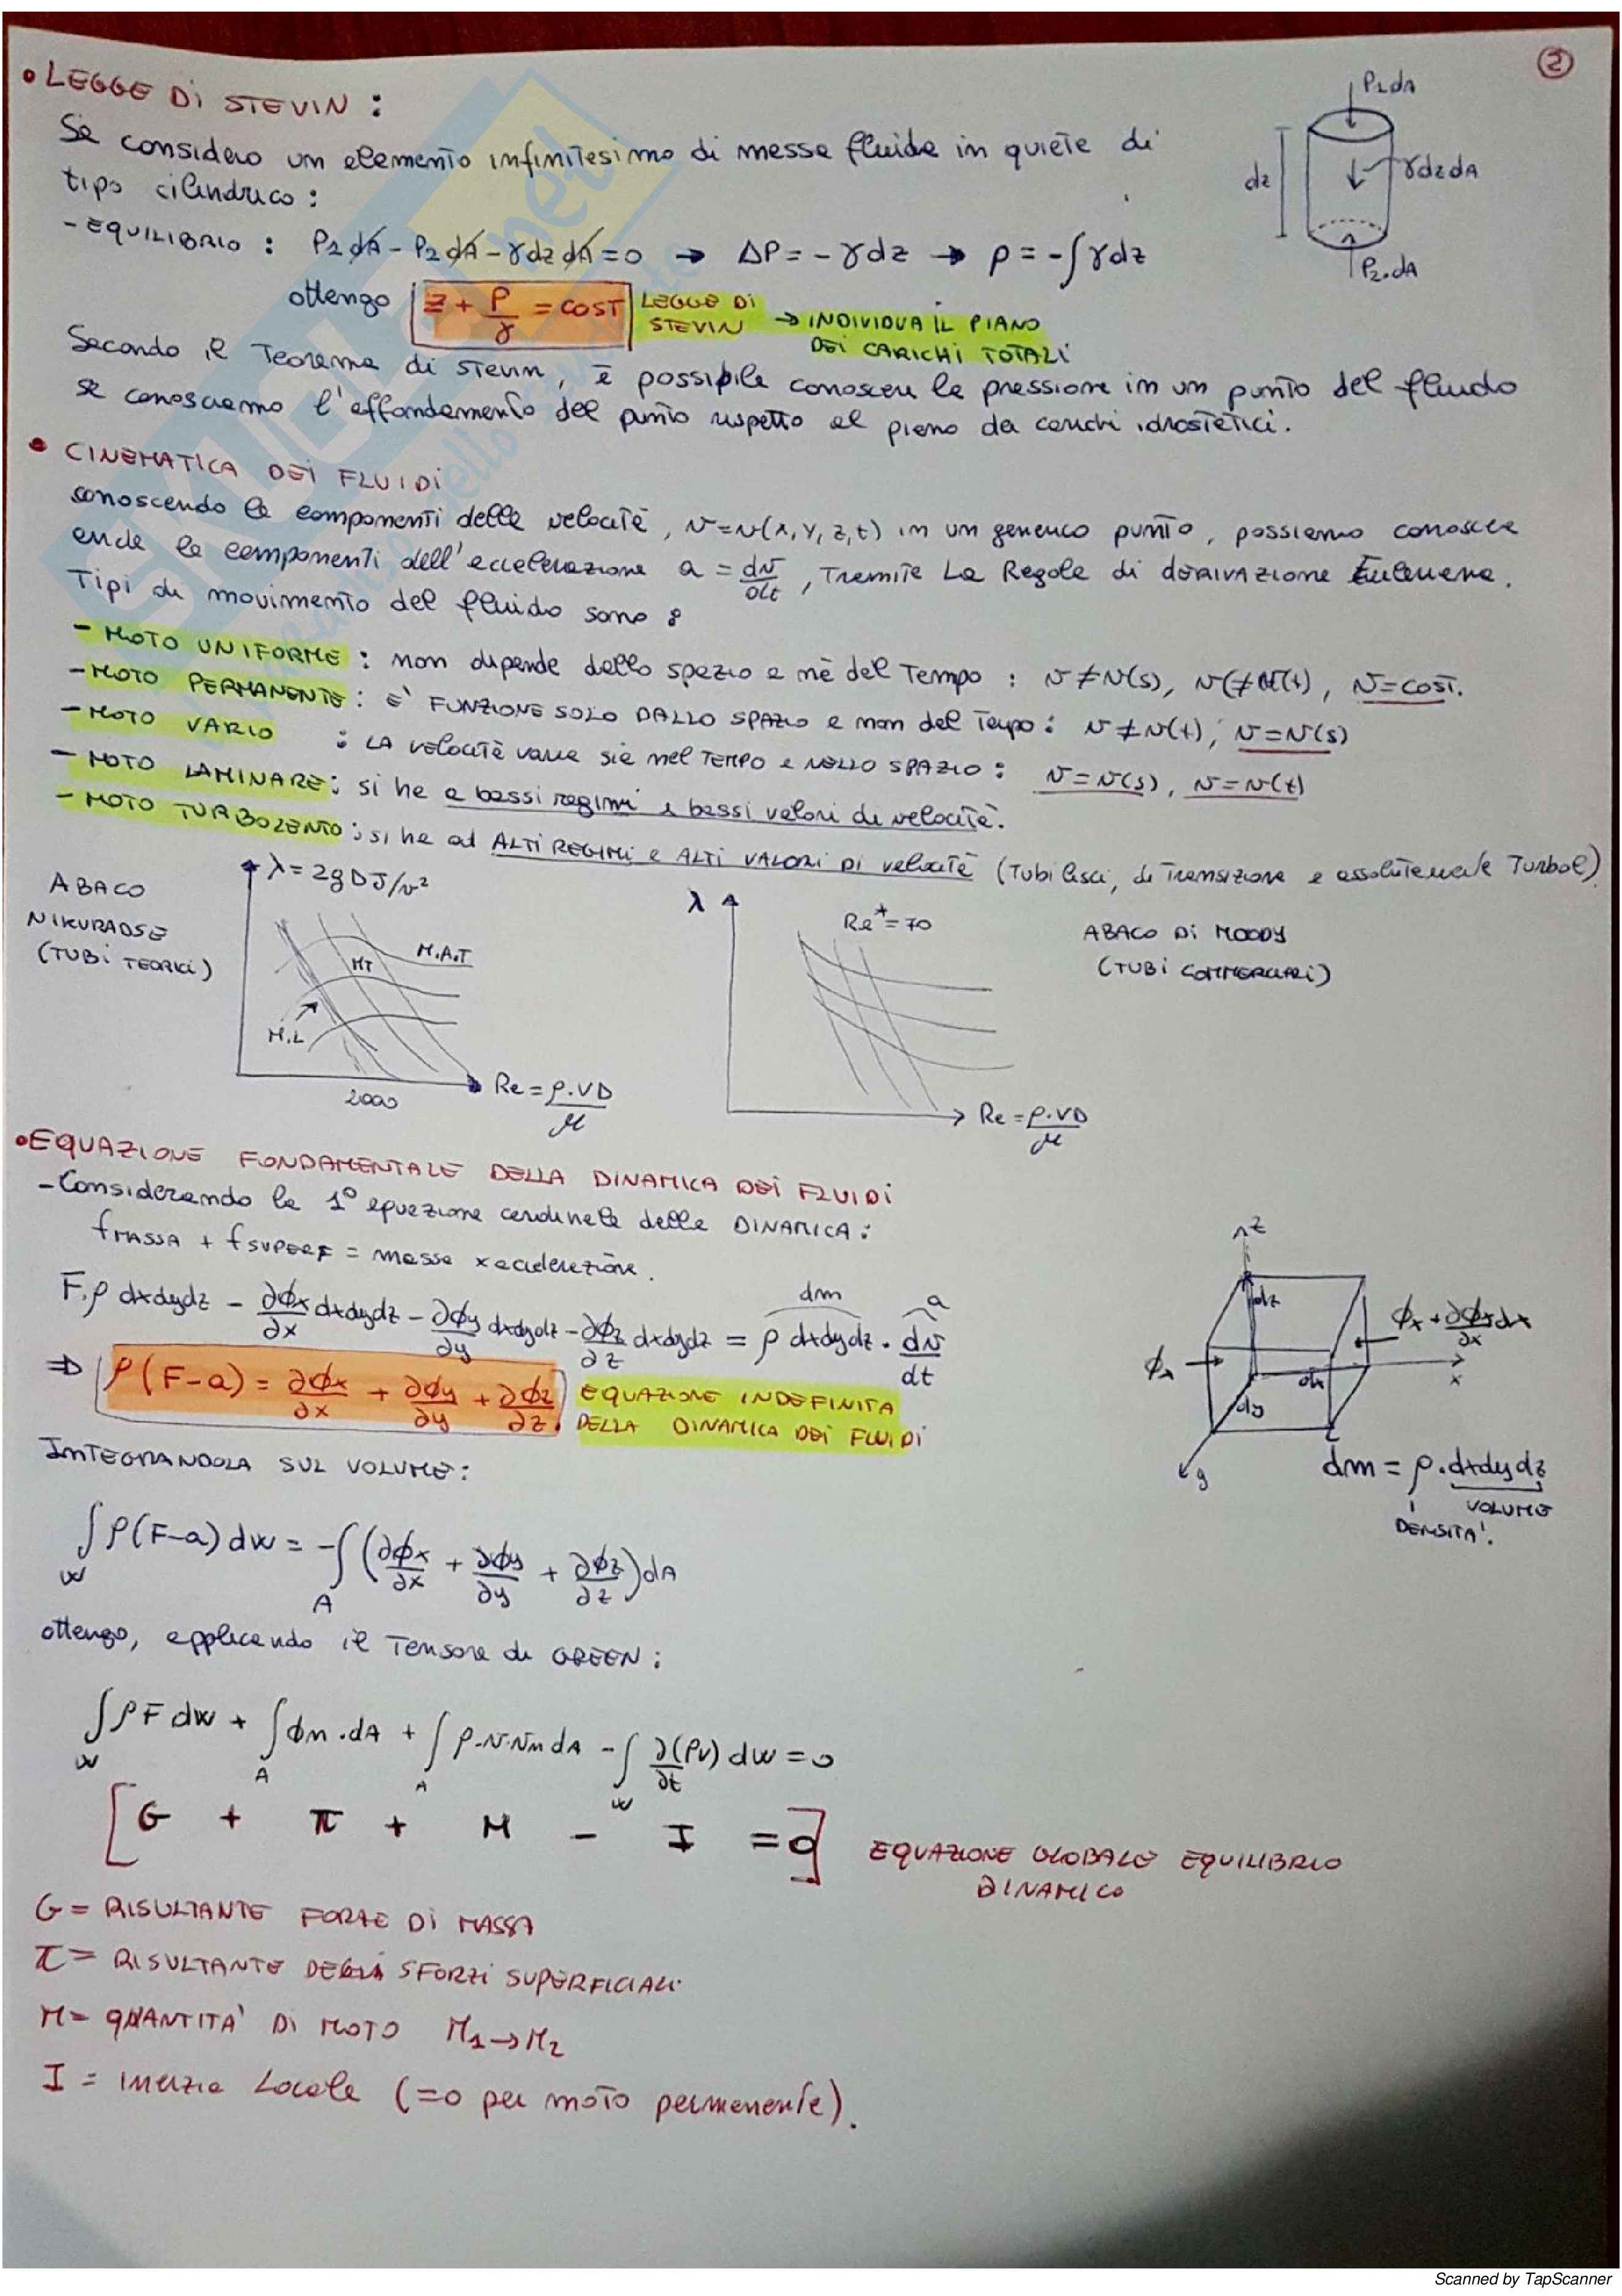 ②
• LEGGE Di STEVIN :
Se considero um elemento infinitesimo di massa fluida in quiete di
tipo cilindrico :
- EQUILIBRIO : P1 dA - P2 dA - γ dz dA = 0 → ΔP = - γ dz → p = -∫ γ dz
ottengo z + P/γ = COST LEGGE Di STEVIN → INDIVIDUA IL PIANO DEI CARICHI TOTALI
P1dA
dz
γdzdA
P2.dA
Secondo il Teorema di Stevin, è possibile conoscere la pressione in un punto del fluido
se conosciamo l'affondamento del punto rispetto al piano dei carichi idrostatici.
• CINEMATICA DEI FLUIDI
conoscendo le componenti della velocità, v=v(x,y,z,t) in un generico punto, possiamo conoscere
anche le componenti dell'accelerazione a = dv/dt, Tramite La Regola di DERIVAZIONE Euleriana.
Tipi di movimento del fluido sono :
- MOTO UNIFORME : non dipende dallo spazio e nè del Tempo : v ≠ v(s), v ≠ v(t), v = cost.
- MOTO PERMANENTE : E' FUNZIONE SOLO DALLO SPAZIO e non del Tempo : v ≠ v(t), v = v(s)
- MOTO VARIO : LA velocità varia sia nel TEMPO e NELLO SPAZIO : v = v(s), v = v(t)
- MOTO LAMINARE : si ha a bassi regimi e bassi valori di velocità.
- MOTO TURBOLENTO : si ha ad ALTI REGIMI e ALTI VALORI DI velocità (Tubi lisci, di Transizione e assolutamente Turbol)
ABACO
NIKURADSE
(TUBI TEORICI)
λ = 2gDJ/v²
M.A.T
MT
M.L
2000
Re = ρ.VD/μ
λ
Re* = 70
Re = ρ.VD/μ
ABACO Di MOODY
(TUBI COMMERCIALI)
• EQUAZIONE FONDAMENTALE DELLA DINAMICA DEI FLUIDI
- Considerando la 1° equazione cardinale della DINAMICA :
fMASSA + fSUPERF = massa x accelerazione.
F.ρ dxdydz - ∂ϕx/∂x dxdydz - ∂ϕy/∂y dxdydz - ∂ϕz/∂z dxdydz = ρ dxdydz . dv/dt
dm
a
⇒ ρ(F-a) = ∂ϕx/∂x + ∂ϕy/∂y + ∂ϕz/∂z. EQUAZIONE INDEFINITA
DELLA DINAMICA DEI FLUIDI
z
dz
ϕx
ϕx + ∂ϕx/∂x dx
dx
x
dy
y
dm = ρ.dxdydz
VOLUME
DENSITA'.
INTEGRANDOLA SUL VOLUME :
∫W ρ(F-a) dw = -∫A (∂ϕx/∂x + ∂ϕy/∂y + ∂ϕz/∂z) dA
ottengo, applicando il Tensore di GREEN :
∫W ρF dw + ∫A ϕn . dA + ∫A ρ.v.vn dA - ∫W ∂(ρv)/∂t dw = 0
[G + π + M - I = 0] EQUAZIONE GLOBALE EQUILIBRIO
DINAMICO
G = RISULTANTE FORZE Di MASSA
π = RISULTANTE DEGLI SFORZI SUPERFICIALI
M = QUANTITA' Di MOTO M1 → M2
I = inerzia Locale (=0 per moto permanente).
Scanned by TapScanner